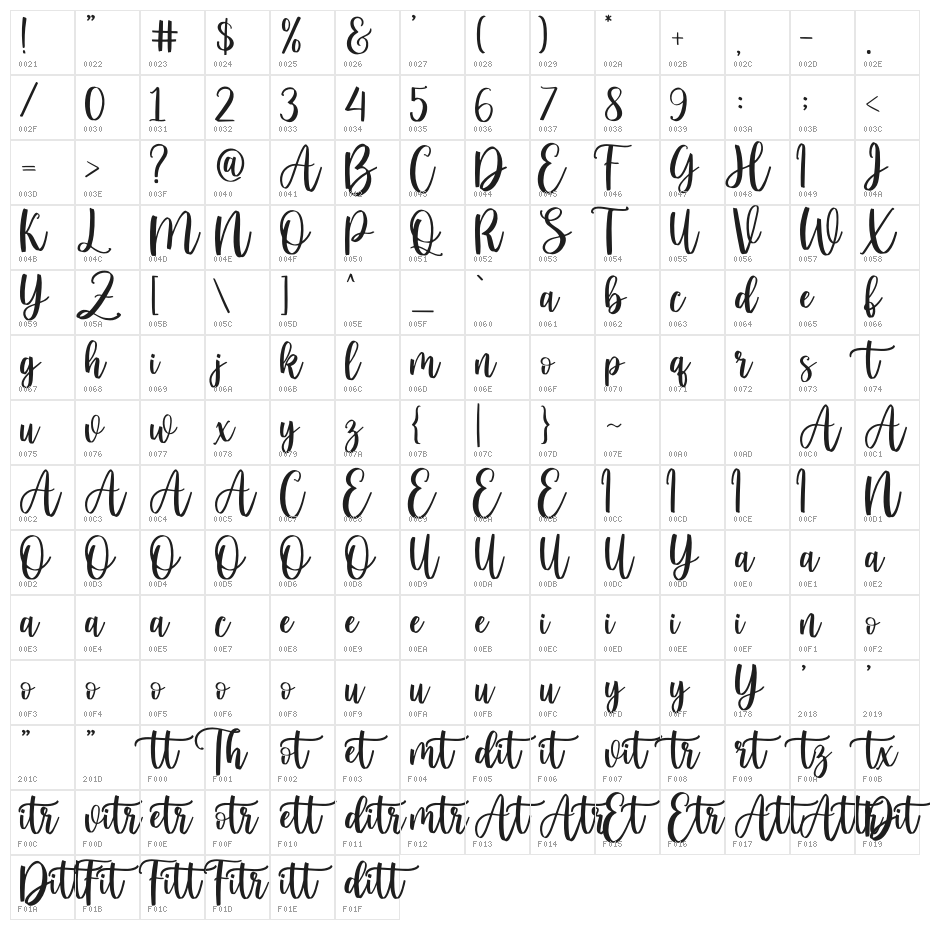 ! " # $ % & ' ( ) * + , - .
0021 0022 0023 0024 0025 0026 0027 0028 0029 002A 002B 002C 002D 002E
/ 0 1 2 3 4 5 6 7 8 9 : ; <
002F 0030 0031 0032 0033 0034 0035 0036 0037 0038 0039 003A 003B 003C
= > ? @ A B C D E F G H I J
003D 003E 003F 0040 0041 0042 0043 0044 0045 0046 0047 0048 0049 004A
K L M N O P Q R S T U V W X
004B 004C 004D 004E 004F 0050 0051 0052 0053 0054 0055 0056 0057 0058
Y Z [ \ ] ^ _ ` a b c d e f
0059 005A 005B 005C 005D 005E 005F 0060 0061 0062 0063 0064 0065 0066
g h i j k l m n o p q r s t
0067 0068 0069 006A 006B 006C 006D 006E 006F 0070 0071 0072 0073 0074
u v w x y z { | } ~ A A
0075 0076 0077 0078 0079 007A 007B 007C 007D 007E 00A0 00AD 00C0 00C1
A A A A C E E E E I I I I N
00C2 00C3 00C4 00C5 00C7 00C8 00C9 00CA 00CB 00CC 00CD 00CE 00CF 00D1
O O O O O O U U U U Y a a a
00D2 00D3 00D4 00D5 00D6 00D8 00D9 00DA 00DB 00DC 00DD 00E0 00E1 00E2
a a a c e e e e i i i i n o
00E3 00E4 00E5 00E7 00E8 00E9 00EA 00EB 00EC 00ED 00EE 00EF 00F1 00F2
o o o o o u u u u y y Y ' '
00F3 00F4 00F5 00F6 00F8 00F9 00FA 00FB 00FC 00FD 00FF 0178 2018 2019
" " tt Th ot et mt dit it vit tr rt tz tx
201C 201D F000 F001 F002 F003 F004 F005 F006 F007 F008 F009 F00A F00B
itr vitr etr otr ett ditr mtr At Atr Et Etr Att Attr Dit
F00C F00D F00E F00F F010 F011 F012 F013 F014 F015 F016 F017 F018 F019
Ditt Fit Fitt Fitr itt ditt
F01A F01B F01C F01D F01E F01F